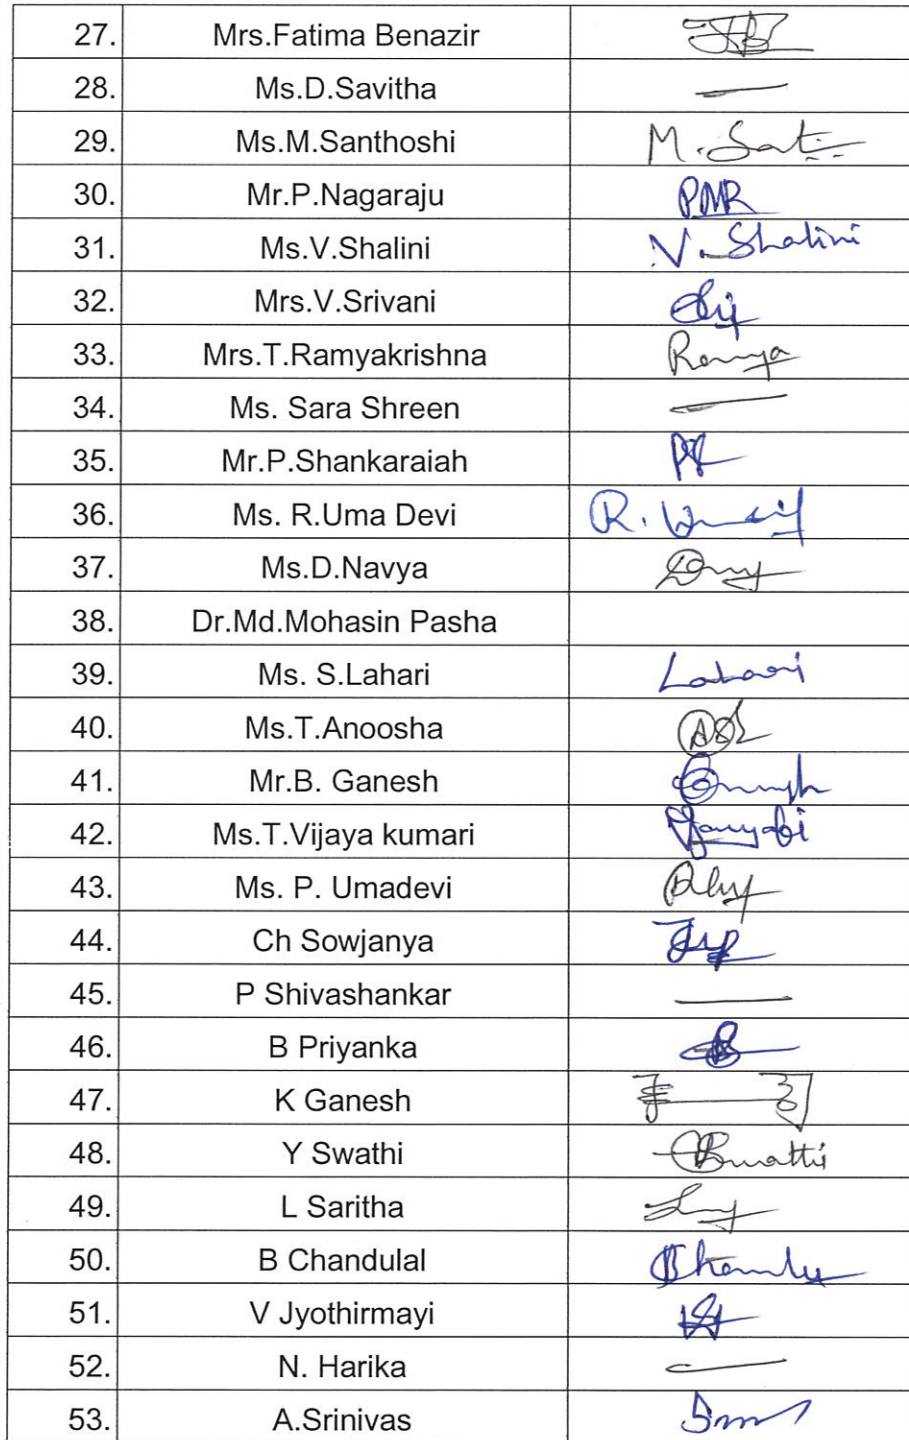 27. Mrs.Fatima Benazir
28. Ms.D.Savitha —
29. Ms.M.Santhoshi M.Sat
30. Mr.P.Nagaraju PNR
31. Ms.V.Shalini V.Shalini
32. Mrs.V.Srivani
33. Mrs.T.Ramyakrishna Ramya
34. Ms. Sara Shreen —
35. Mr.P.Shankaraiah
36. Ms. R.Uma Devi
37. Ms.D.Navya
38. Dr.Md.Mohasin Pasha
39. Ms. S.Lahari Lahari
40. Ms.T.Anoosha
41. Mr.B. Ganesh
42. Ms.T.Vijaya kumari
43. Ms. P. Umadevi
44. Ch Sowjanya
45. P Shivashankar —
46. B Priyanka
47. K Ganesh
48. Y Swathi Swathi
49. L Saritha
50. B Chandulal
51. V Jyothirmayi
52. N. Harika —
53. A.Srinivas